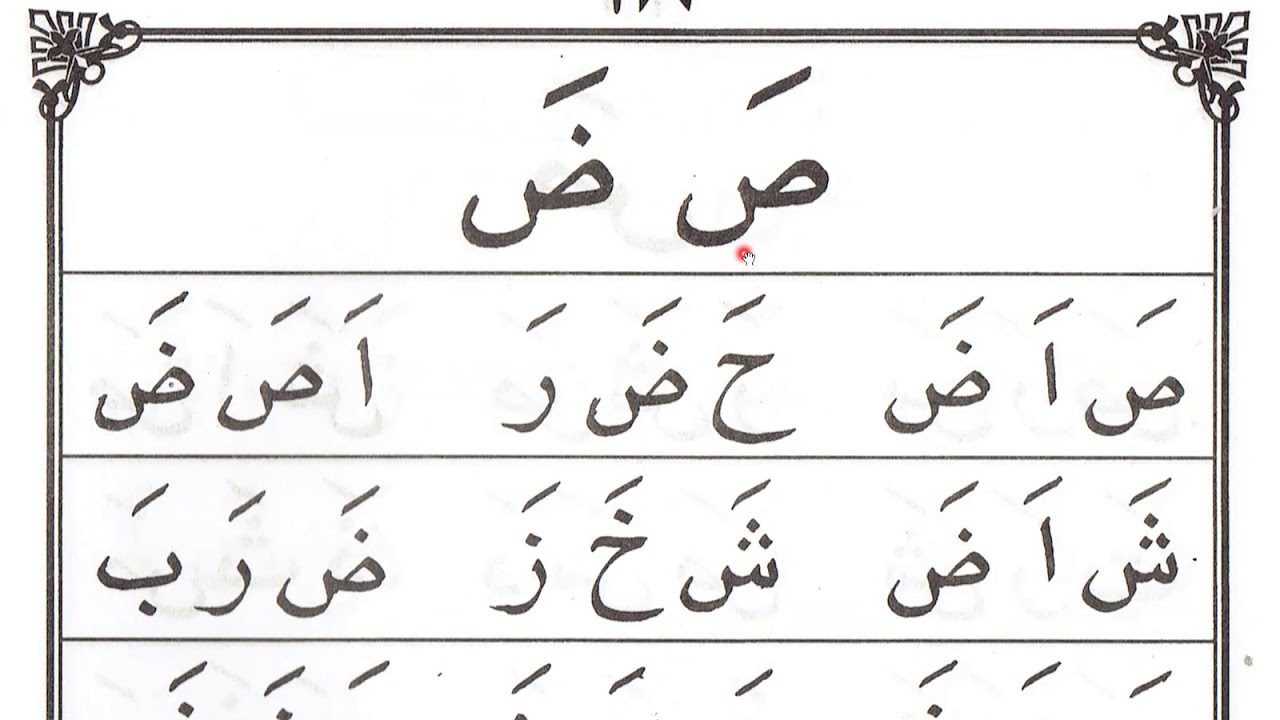 صَ ضَ
صَ اَ ضَ حَ ضَ رَ اَ صَ ضَ
شَ اَ ضَ شَ خَ زَ ضَ رَ بَ